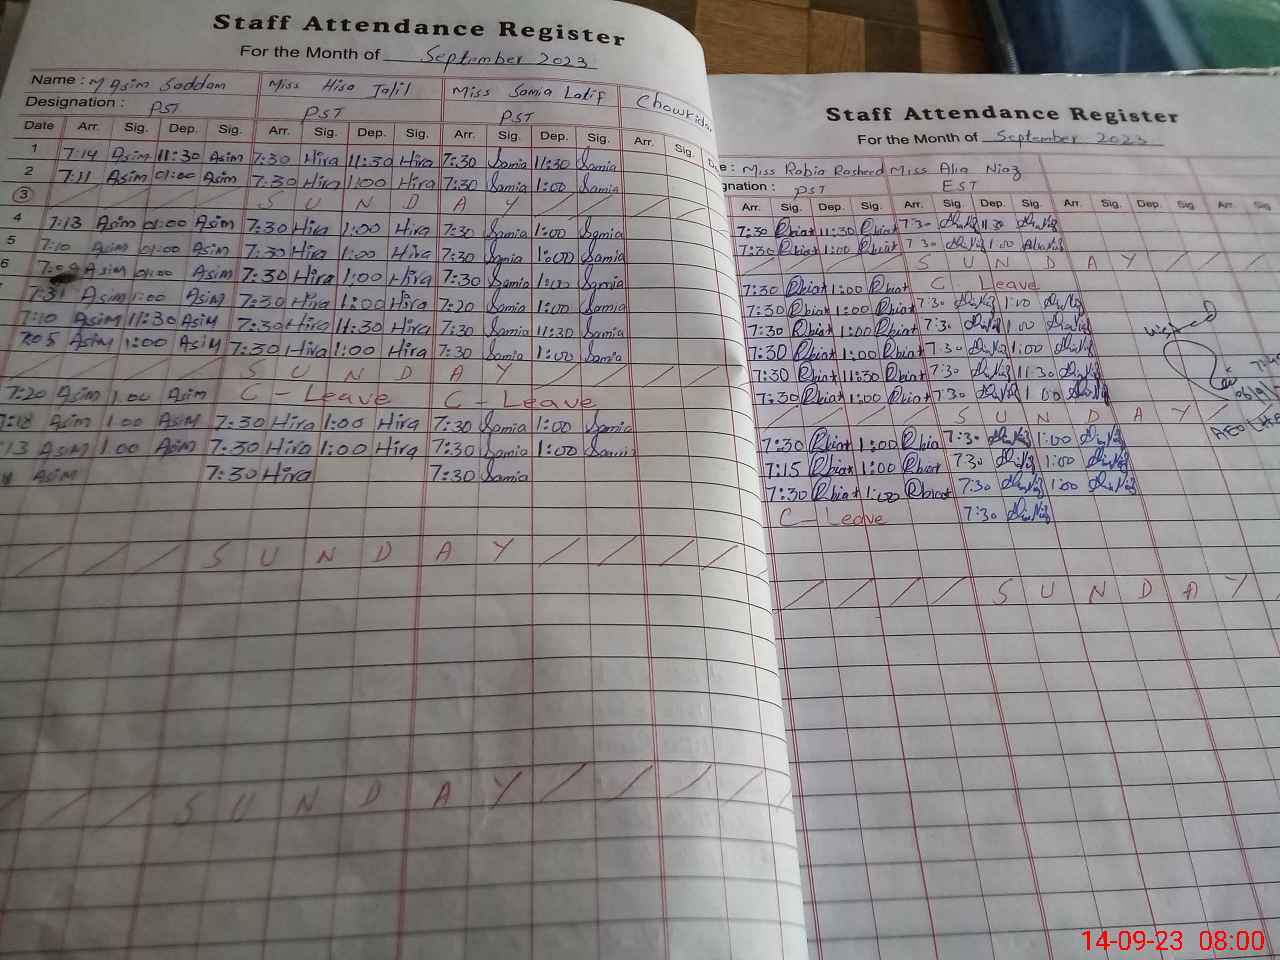 Staff Attendance Register
For the Month of September 2023
Name : M Asim Saddam Miss Hira Jalil Miss Samia Latif Chowkidar
Designation : PST PST PST
Date Arr. Sig. Dep. Sig. Arr. Sig. Dep. Sig. Arr. Sig. Dep. Sig. Arr. Sig.
1 7:14 Asim 11:30 Asim 7:30 Hira 11:30 Hira 7:30 Samia 11:30 Samia
2 7:11 Asim 01:00 Asim 7:30 Hira 1:00 Hira 7:30 Samia 1:00 Samia
3 S U N D A Y
4 7:13 Asim 01:00 Asim 7:30 Hira 1:00 Hira 7:30 Samia 1:00 Samia
5 7:10 Asim 01:00 Asim 7:30 Hira 1:00 Hira 7:30 Samia 1:00 Samia
6 Asim 01:00 Asim 7:30 Hira 1:00 Hira 7:30 Samia 1:00 Samia
7:31 Asim 1:00 Asim 7:30 Hira 1:00 Hira 7:20 Samia 1:00 Samia
7:10 Asim 11:30 Asim 7:30 Hira 11:30 Hira 7:30 Samia 11:30 Samia
7:05 Asim 1:00 Asim 7:30 Hira 1:00 Hira 7:30 Samia 1:00 Samia
S U N D A Y
7:20 Asim 1.00 Asim C - Leave C - Leave
7:18 Asim 1.00 Asim 7:30 Hira 1:00 Hira 7:30 Samia 1:00 Samia
13 Asim 1.00 Asim 7:30 Hira 1:00 Hira 7:30 Samia 1:00 Samia
Asim 7:30 Hira 7:30 Samia
S U N D A Y
S U N D A Y
Staff Attendance Register
For the Month of September 2023
e : Miss Rabia Rasheed Miss Alia Niaz
gnation : PST EST
Arr. Sig. Dep. Sig. Arr. Sig. Dep. Sig. Arr. Sig. Dep. Sig. Arr. Sig.
7:30 11:30 7:30 11:30
7:30 1:00 7:30 1:00
S U N D A Y
7:30 1:00 C - Leave
7:30 1:00 7:30 1:00
7:30 1:00 7:30 1:00
7:30 1:00 7:30 1:00
7:30 11:30 7:30 11:30
7:30 1:00 7:30 1:00
S U N D A Y
7:30 1:00 7:30 1:00
7:15 1:00 7:30 1:00
7:30 1:00 7:30 1:00
C - Leave 7:30
S U N D A Y
Visited
AEO
14-09-23 08:00